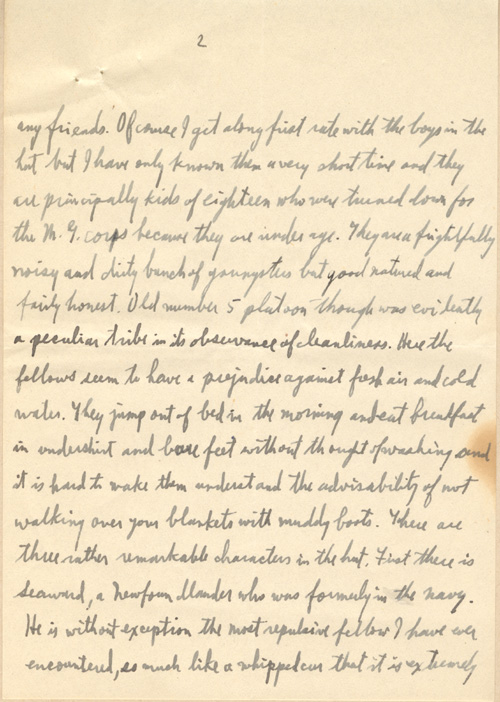 2
any friends. Of course I get along first rate with the boys in the
hut but I have only known them a very short time and they
are principally kids of eighteen who were turned down for
the M. G. corps because they are under age. They are a frightfully
noisy and dirty bunch of youngsters but good natured and
fairly honest. Old number 5 platoon though was evidently
a peculiar tribe in its observance of cleanliness. Here the
fellows seem to have a prejudice against fresh air and cold
water. They jump out of bed in the morning and eat breakfast
in undershirt and bare feet without thought of washing and
it is hard to make them understand the advisability of not
walking over your blankets with muddy boots. There are
three rather remarkable characters in the hut. First there is
Seaward, a Newfoundlander who was formerly in the navy.
He is without exception the most repulsive fellow I have ever
encountered, so much like a whipped cur that it is extremely